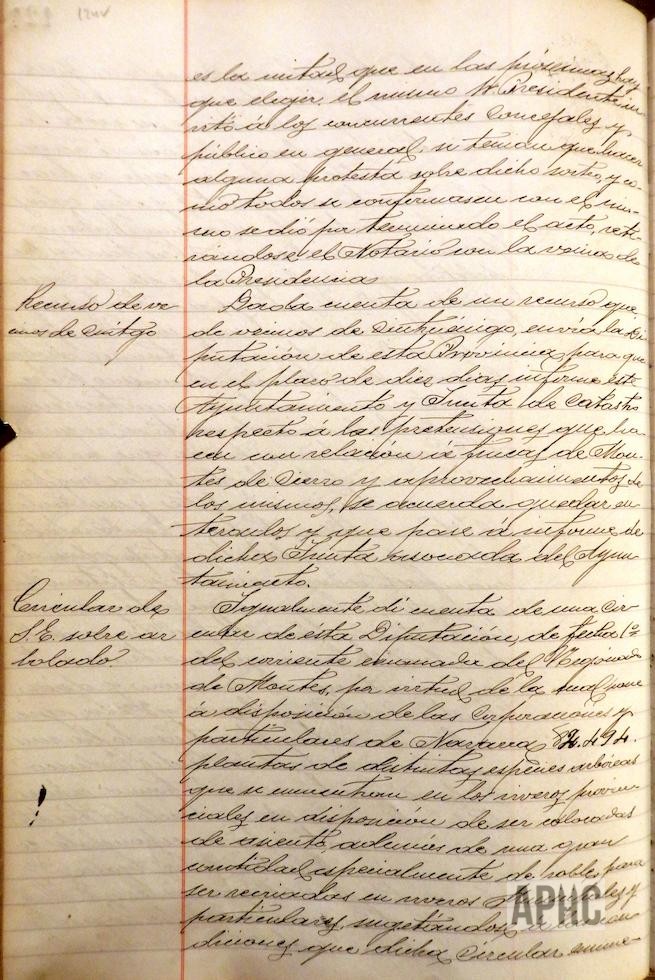 124v
es la mitad que en las próximas hay
que elegir, el mismo Sr. Presidente in
vitó á los concurrentes Concejales y
público en general, si tenian que hacer
alguna protesta sobre dicho sorteo, y co
mo todos se conformasen con el mis-
mo se dió por terminado el acto, reti-
rándose el Notario con la venia de
la Presidencia
Recurso de ve
cinos de Cintgo
Dada cuenta de un recurso que
de vecinos de Cintruénigo, envía la Di
putación de esta Provincia para que
en el plazo de diez dias informe este
Ayuntamiento y Junta de Catastro
respecto á las pretensiones que ha
cen con relación á fincas de Mon-
tes de Cierzo y aprovechamientos de
los mismos, se acuerda quedar en
terados y que pase á informe de
dicha Junta asociada del Ayun
tamiento.
Circular de
S.E. sobre ar
bolado
Igualmente di cuenta de una Cir
cular de ésta Diputación, de fecha 1º
del corriente emanada del Negociado
de Montes, por virtud de la cual pone
á disposición de las Corporaciones y
particulares de Navarra 494.
plantas de distintas especies arbóreas
que se encuentran en los viveros provin
ciales en disposición de ser colocadas
de asiento además de una gran
cantidad especialmente de roble para
ser recriadas en viveros y
particulares, sugetándose
diciones que dicha Circular enume-
!
APHC